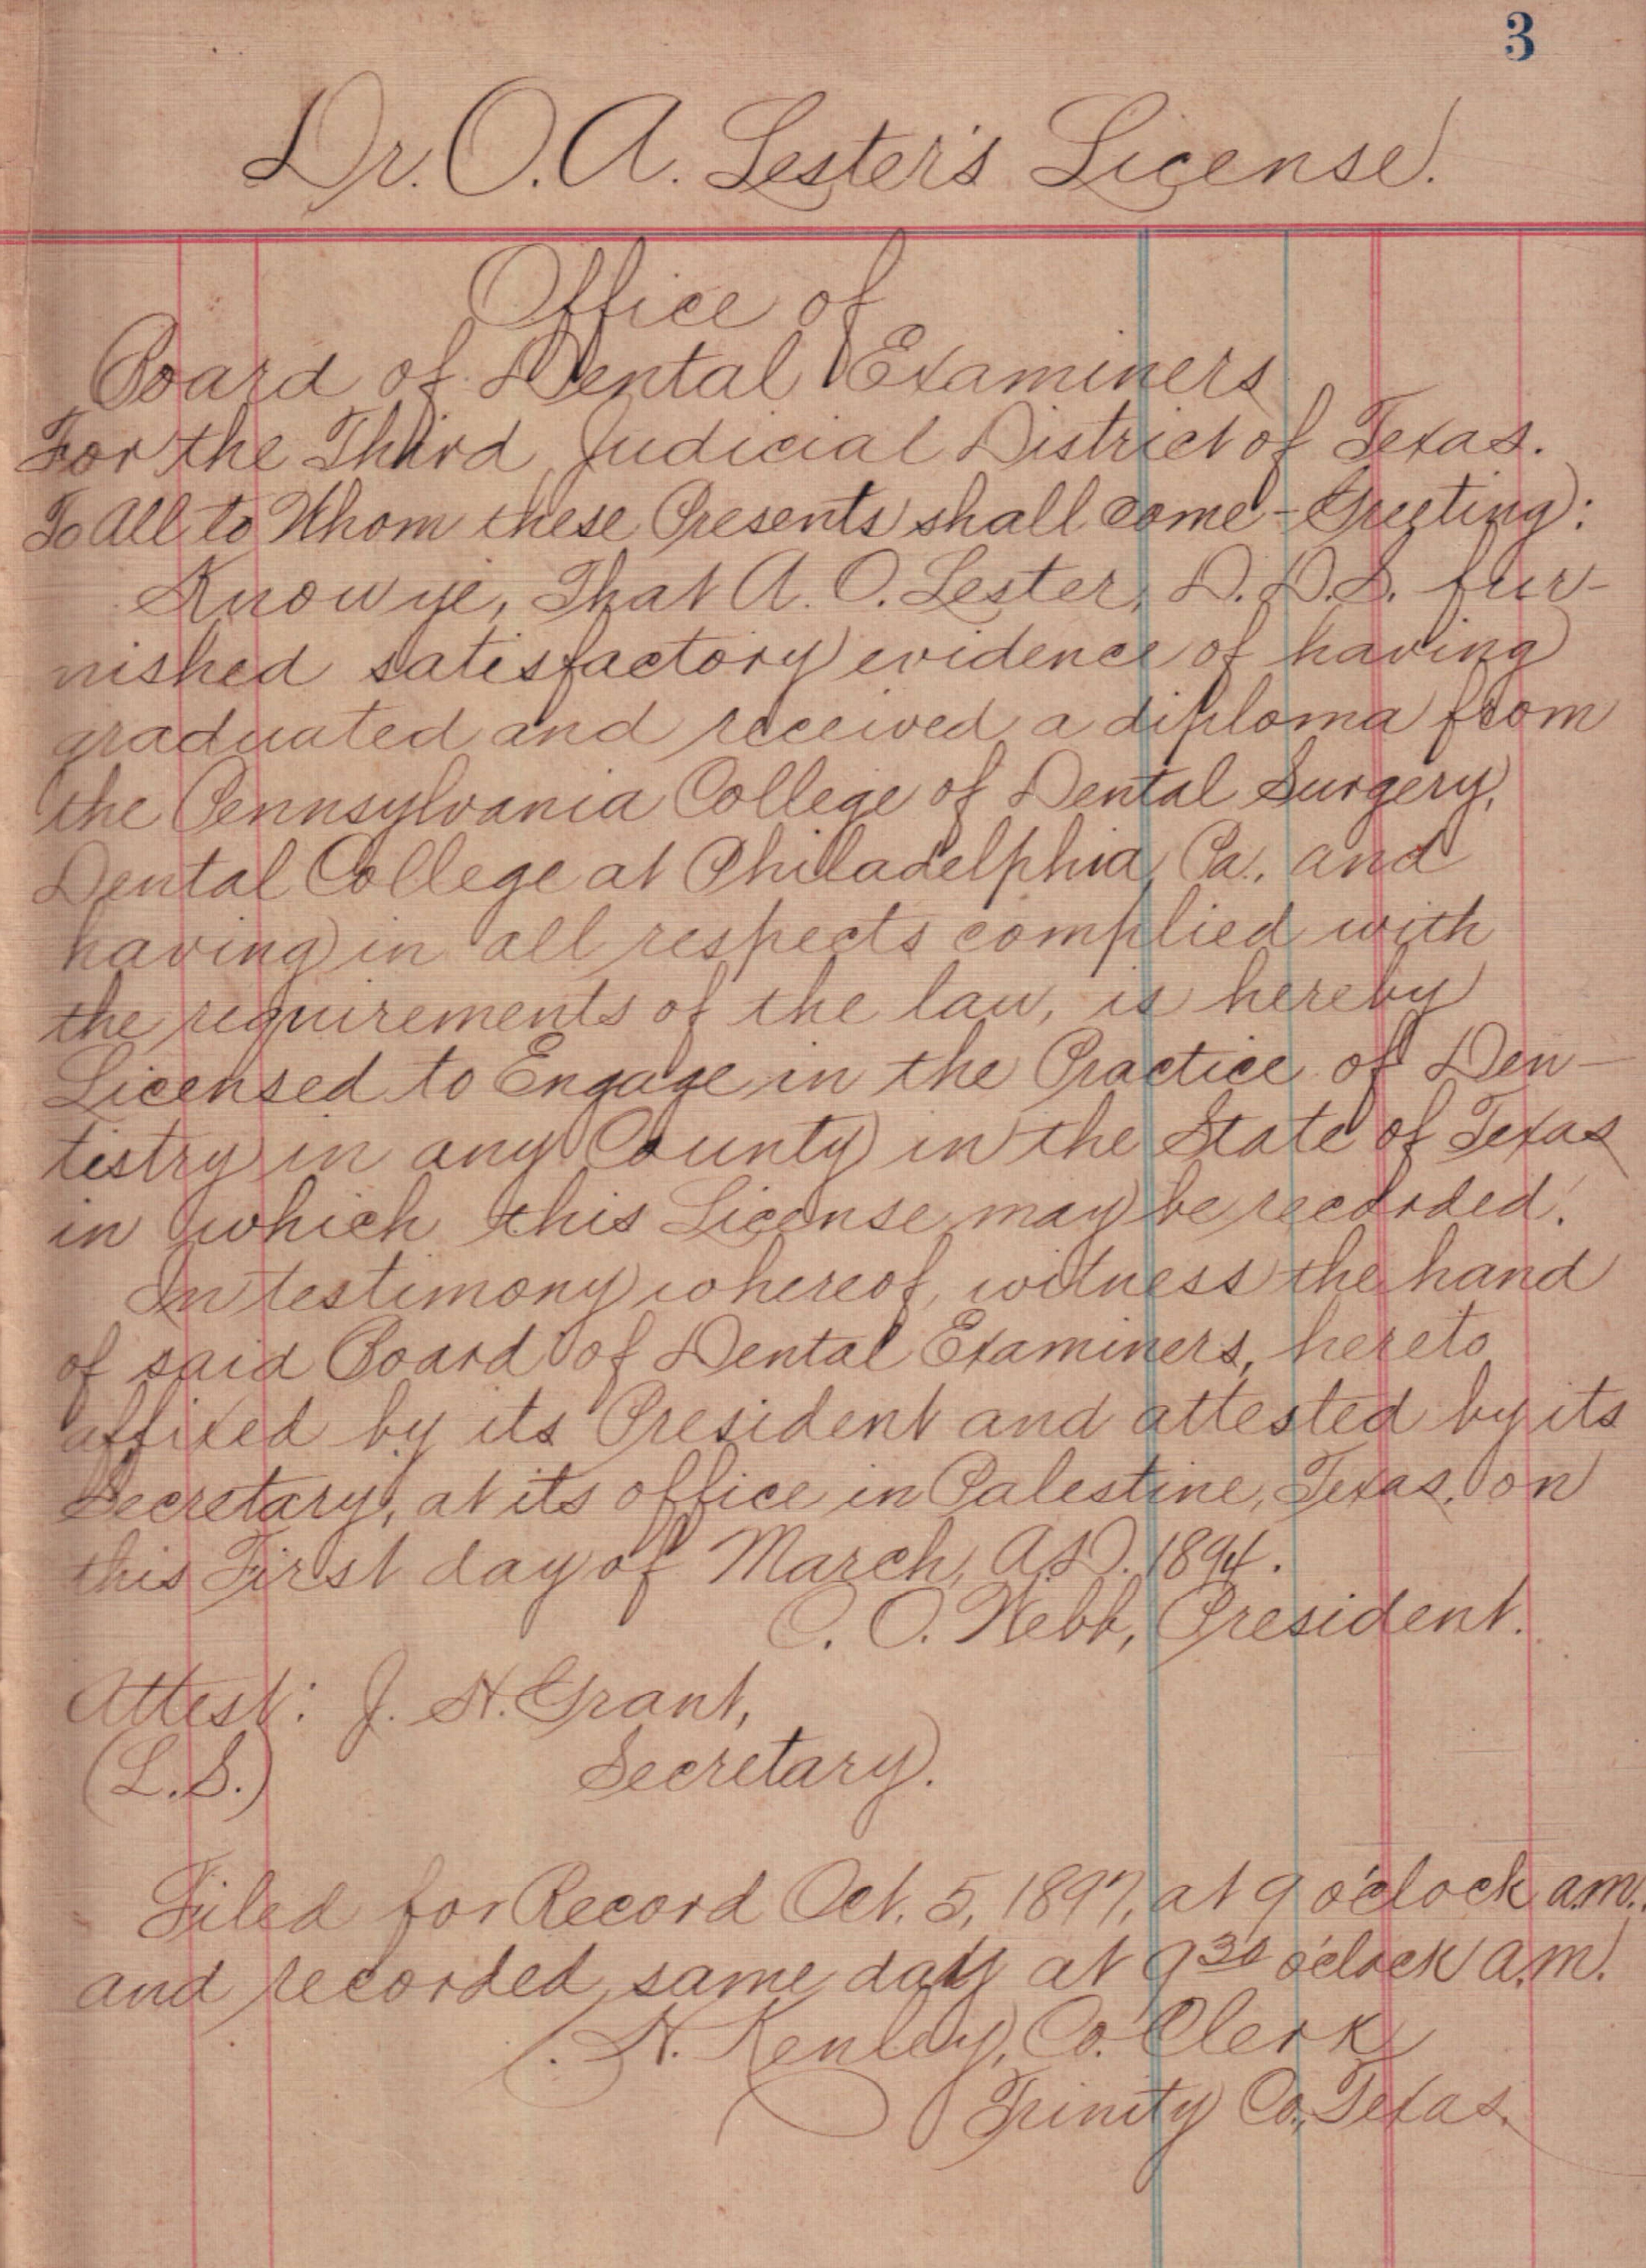 3
Dr. O. A. Lester's License.
Office of
Board of Dental Examiners
For the Third Judicial District of Texas.
To All to Whom these Presents shall come - Greeting:
Know ye, That A. O. Lester, D. D. S. fur-
nished satisfactory evidence of having
graduated and received a diploma from
the Pennsylvania College of Dental Surgery,
Dental College at Philadelphia, Pa., and
having in all respects complied with
the requirements of the law, is hereby
Licensed to Engage in the Practice of Den-
tistry in any County in the State of Texas
in which this License may be recorded.
In testimony whereof, witness the hand
of said Board of Dental Examiners, hereto
affixed by its President and attested by its
Secretary, at its office in Palestine, Texas, on
this First day of March, A.D. 1894.
C. O. Webb, President.
Attest: J. H. Grant,
(L.S.) Secretary.
Filed for Record Oct. 5, 1897, at 9 o'clock a.m.,
and recorded same day at 9 30 o'clock A.M.
H. Kenley, Co. Clerk
Trinity Co., Texas.